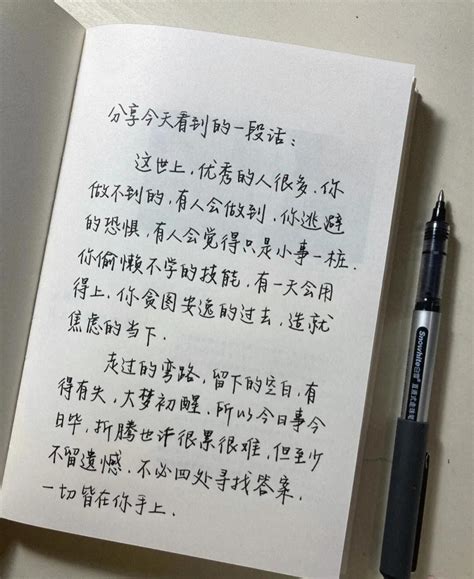 分享今天看到的一段话：
这世上，优秀的人很多、你
做不到的，有人会做到、你逃避
的恐惧，有人会觉得只是小事一桩．
你偷懒不学的技能，有一天会用
得上、你贪图安逸的过去，造就
焦虑的当下．
走过的弯路，留下的空白，有
得有失，大梦初醒．所以今日事今
日毕，折腾也许很累很难，但至少
不留遗憾．不必四处寻找答案．
一切皆在你手上．
Snowhite白雪